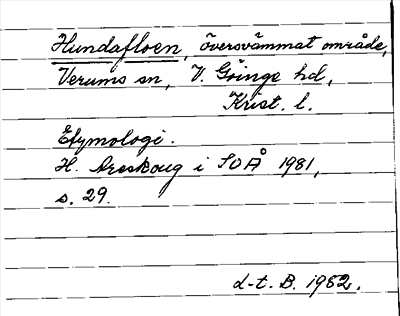 Hundafloen, översvämmat område,
Verums sn, V. Göinge hd,
Krist. l.
Etymologi.
H. Areskoug i SOÅ 1981,
s. 29.
d-t. B. 1982.